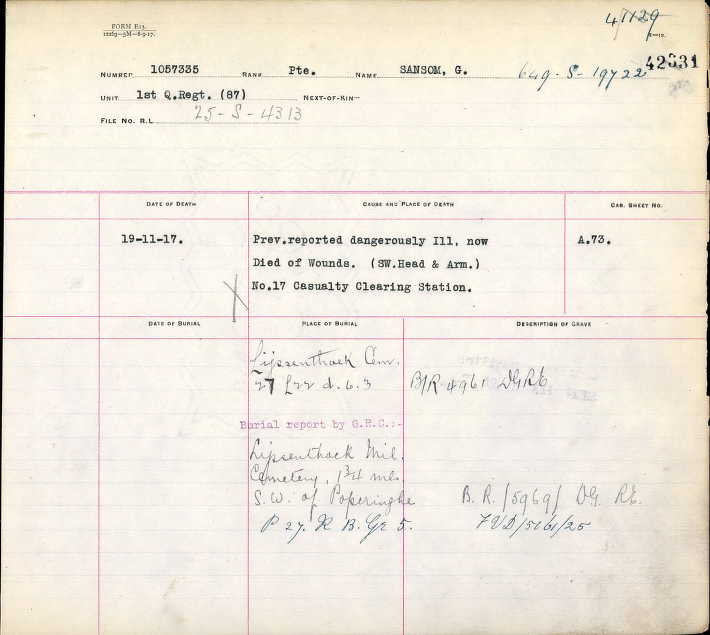 FORM E13.
12269—5M—8-9-17.
47129
42831
NUMBER 1057335 RANK Pte. NAME SANSOM, G. 649-S-19722
UNIT 1st Q.Regt. (87) NEXT-OF-KIN—
FILE NO. R.L. 25-S-4313
DATE OF DEATH CAUSE AND PLACE OF DEATH CAS. SHEET NO.
19-11-17. Prev.reported dangerously Ill, now A.73.
Died of Wounds. (SW.Head & Arm.)
No.17 Casualty Clearing Station.
DATE OF BURIAL PLACE OF BURIAL DESCRIPTION OF GRAVE
Lijssenthoek Cem.
27 L22 d. 6. 3 B/R 4961 DGRE
Burial report by G.R.C.:-
Lijssenthoek Mil.
Cemetery, 1 3/4 mls.
S.W. of Poperinghe B. R. /5969/ DG. RE.
P 27. R B. Gr 5.